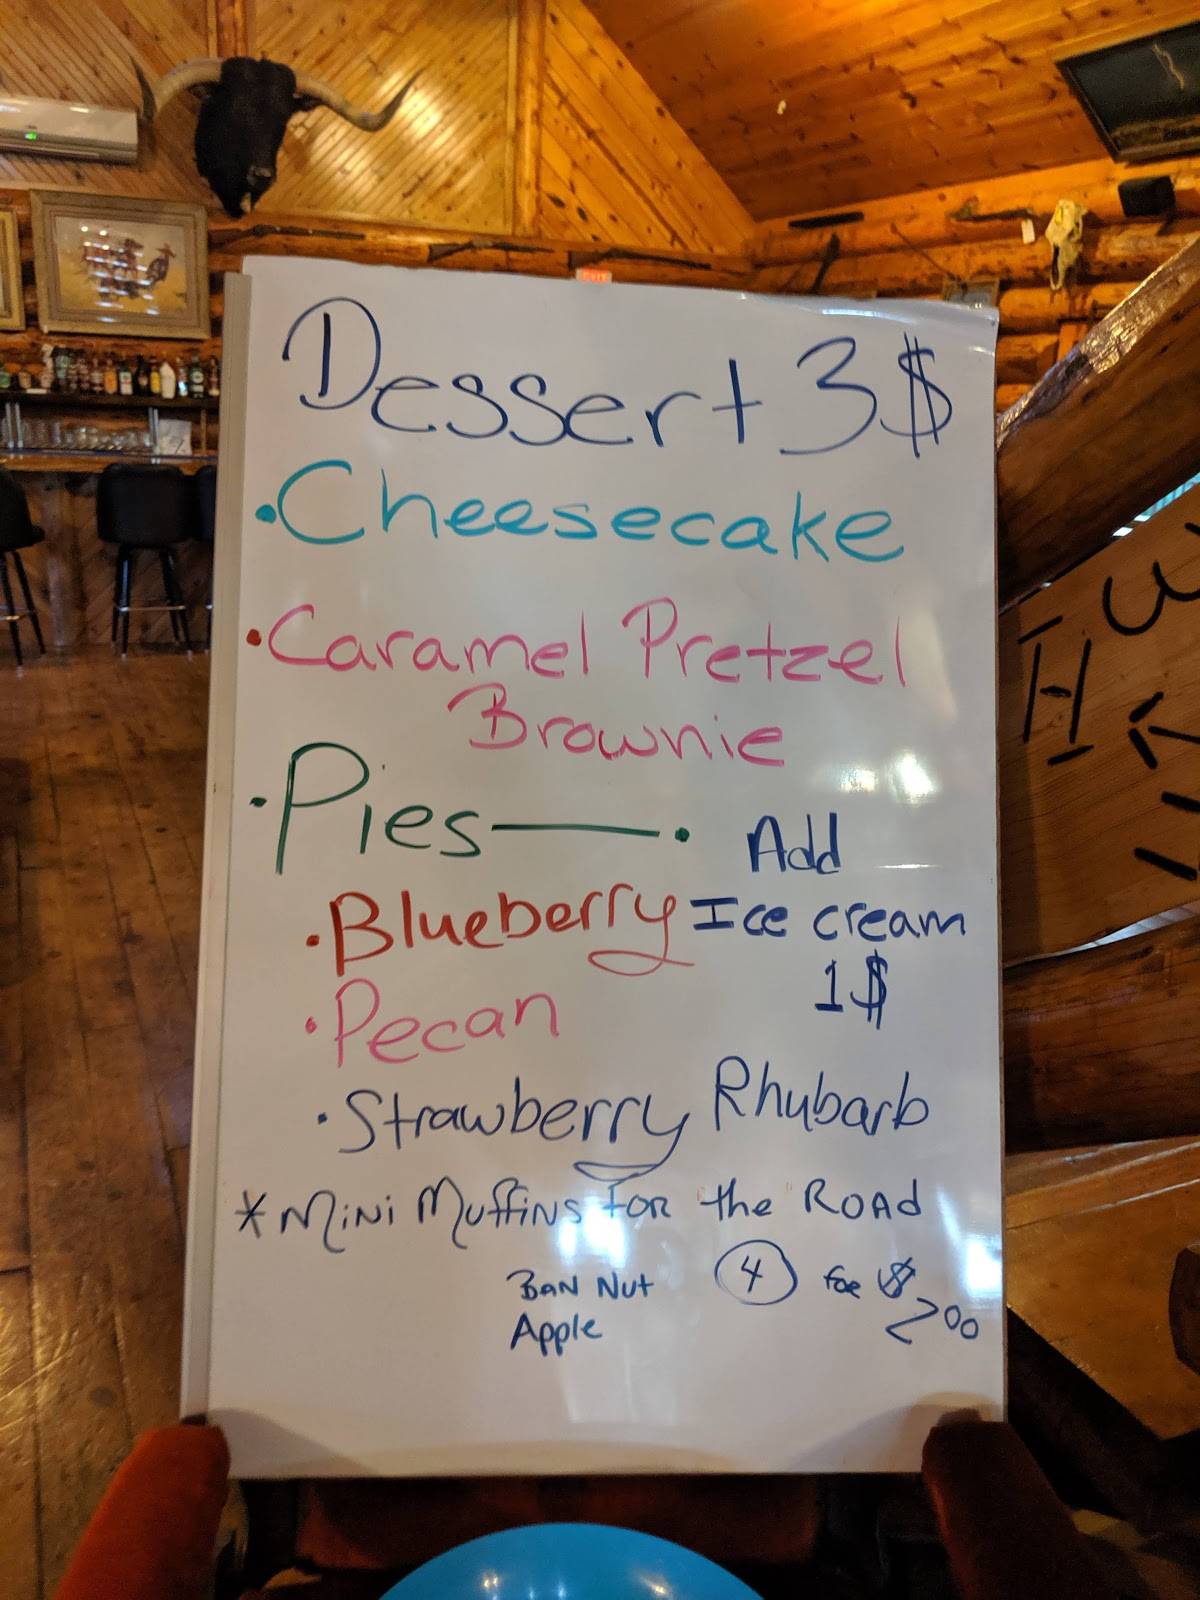 Dessert 3$
• Cheesecake
• Caramel Pretzel
Brownie
• Pies —•
Add
Ice cream
1$
• Blueberry
• Pecan
• Strawberry Rhubarb
* Mini Muffins For the Road
Ban Nut
Apple
4 for $
2 00
EXIT